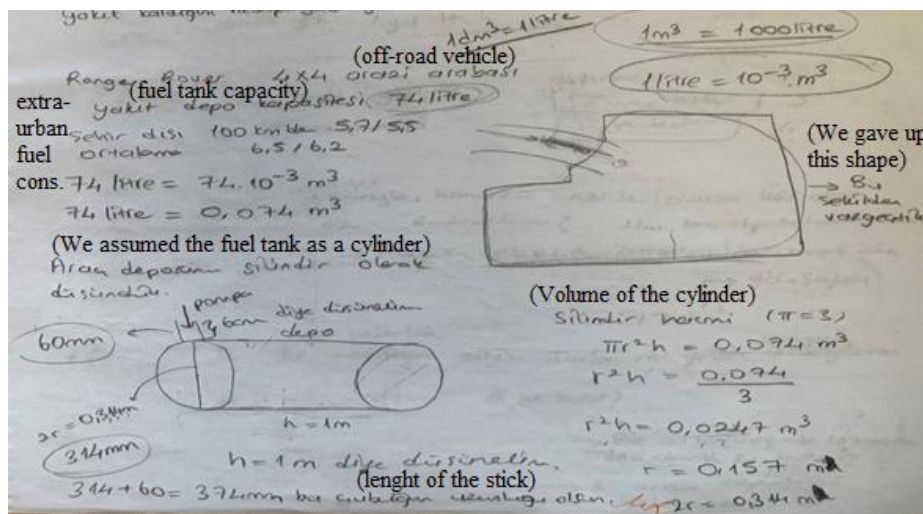 yakıt
1dm³ = 1 litre
1m³ = 1000 litre
1 litre = 10⁻³ m³
(off-road vehicle)
Range Rover 4x4 arazi arabası
(fuel tank capacity)
yakıt depo kapasitesi 74 litre
extra-
urban
fuel
cons.
şehir dışı 100 km'de 5,7/5,5
ortalama 6,5/6,2
74 litre = 74.10⁻³ m³
74 litre = 0,074 m³
(We gave up
this shape)
→ Bu
şekilden
vazgeçtik
(We assumed the fuel tank as a cylinder)
Araç deposunu silindir olarak
düşündük.
pompa
6cm diye düşünelim
depo
60mm
2r = 0,314m
314mm
h = 1m
h = 1m diye düşünelim.
(lenght of the stick)
314+60 = 374mm bu çubuğun uzunluğu olsun.
(Volume of the cylinder)
Silindir hacmi (π=3)
πr²h = 0,074 m³
r²h = 0,074
3
r²h = 0,0247 m³
r = 0,157 m
2r = 0,314 m